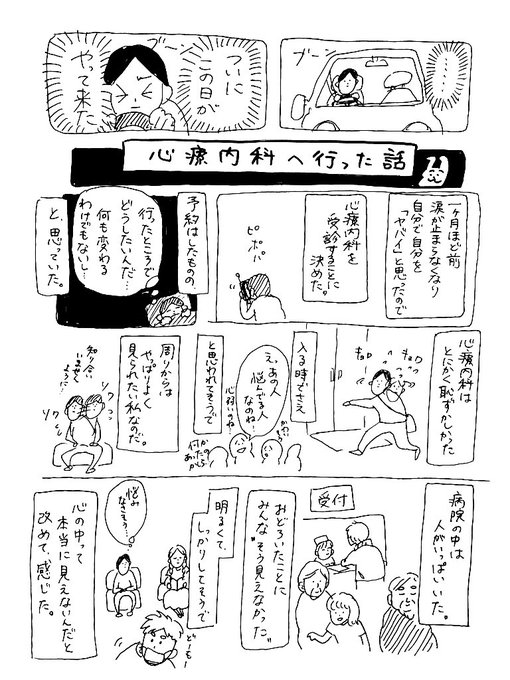 ブーン
‥‥‥
ついに
この日が
やって来た
ブーン
心療内科へ行った話
一ヶ月ほど前
涙が止まらなくなり
自分で自分を
「ヤバイ」と思ったので
心療内科を
受診することに
決めた。
ピポパ
予約はしたものの、
行ったところで
どうしたいんだ…
何も変わる
わけでもないし…
と、思っていた。
心療内科は
とにかく恥ずかしかった
キョロ
キョロ
入る時でさえ
え、あの人
悩んでる人
なのね!
心弱いのね
何か
あったの
かしら
と思われそうで
周りからは
やっぱりよく
見られたい私なのだ。
知り合い
いません
ように…
ソワ
ソワ
病院の中は
人がいっぱいいた。
受付
おどろいたことに
みんな“そう見えなかった”
明るくて、
しっかりしてそうで
悩み
なさそう…
どーもー
心の中って
本当に見えないんだと
改めて、感じた。